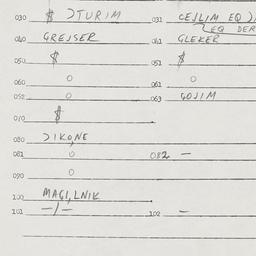 030 $ ƆTURIM 031 CEJLIM EQ
EQ DER
040 GREJSER 041 GLEKER
050 $ 051 $
060 O 061 O
062 O 063 GOJIM
070 $
080 ƆIKO,NE
081 O 082 —
090 O
100 MAGI,LNIK
101 —/— 102 —